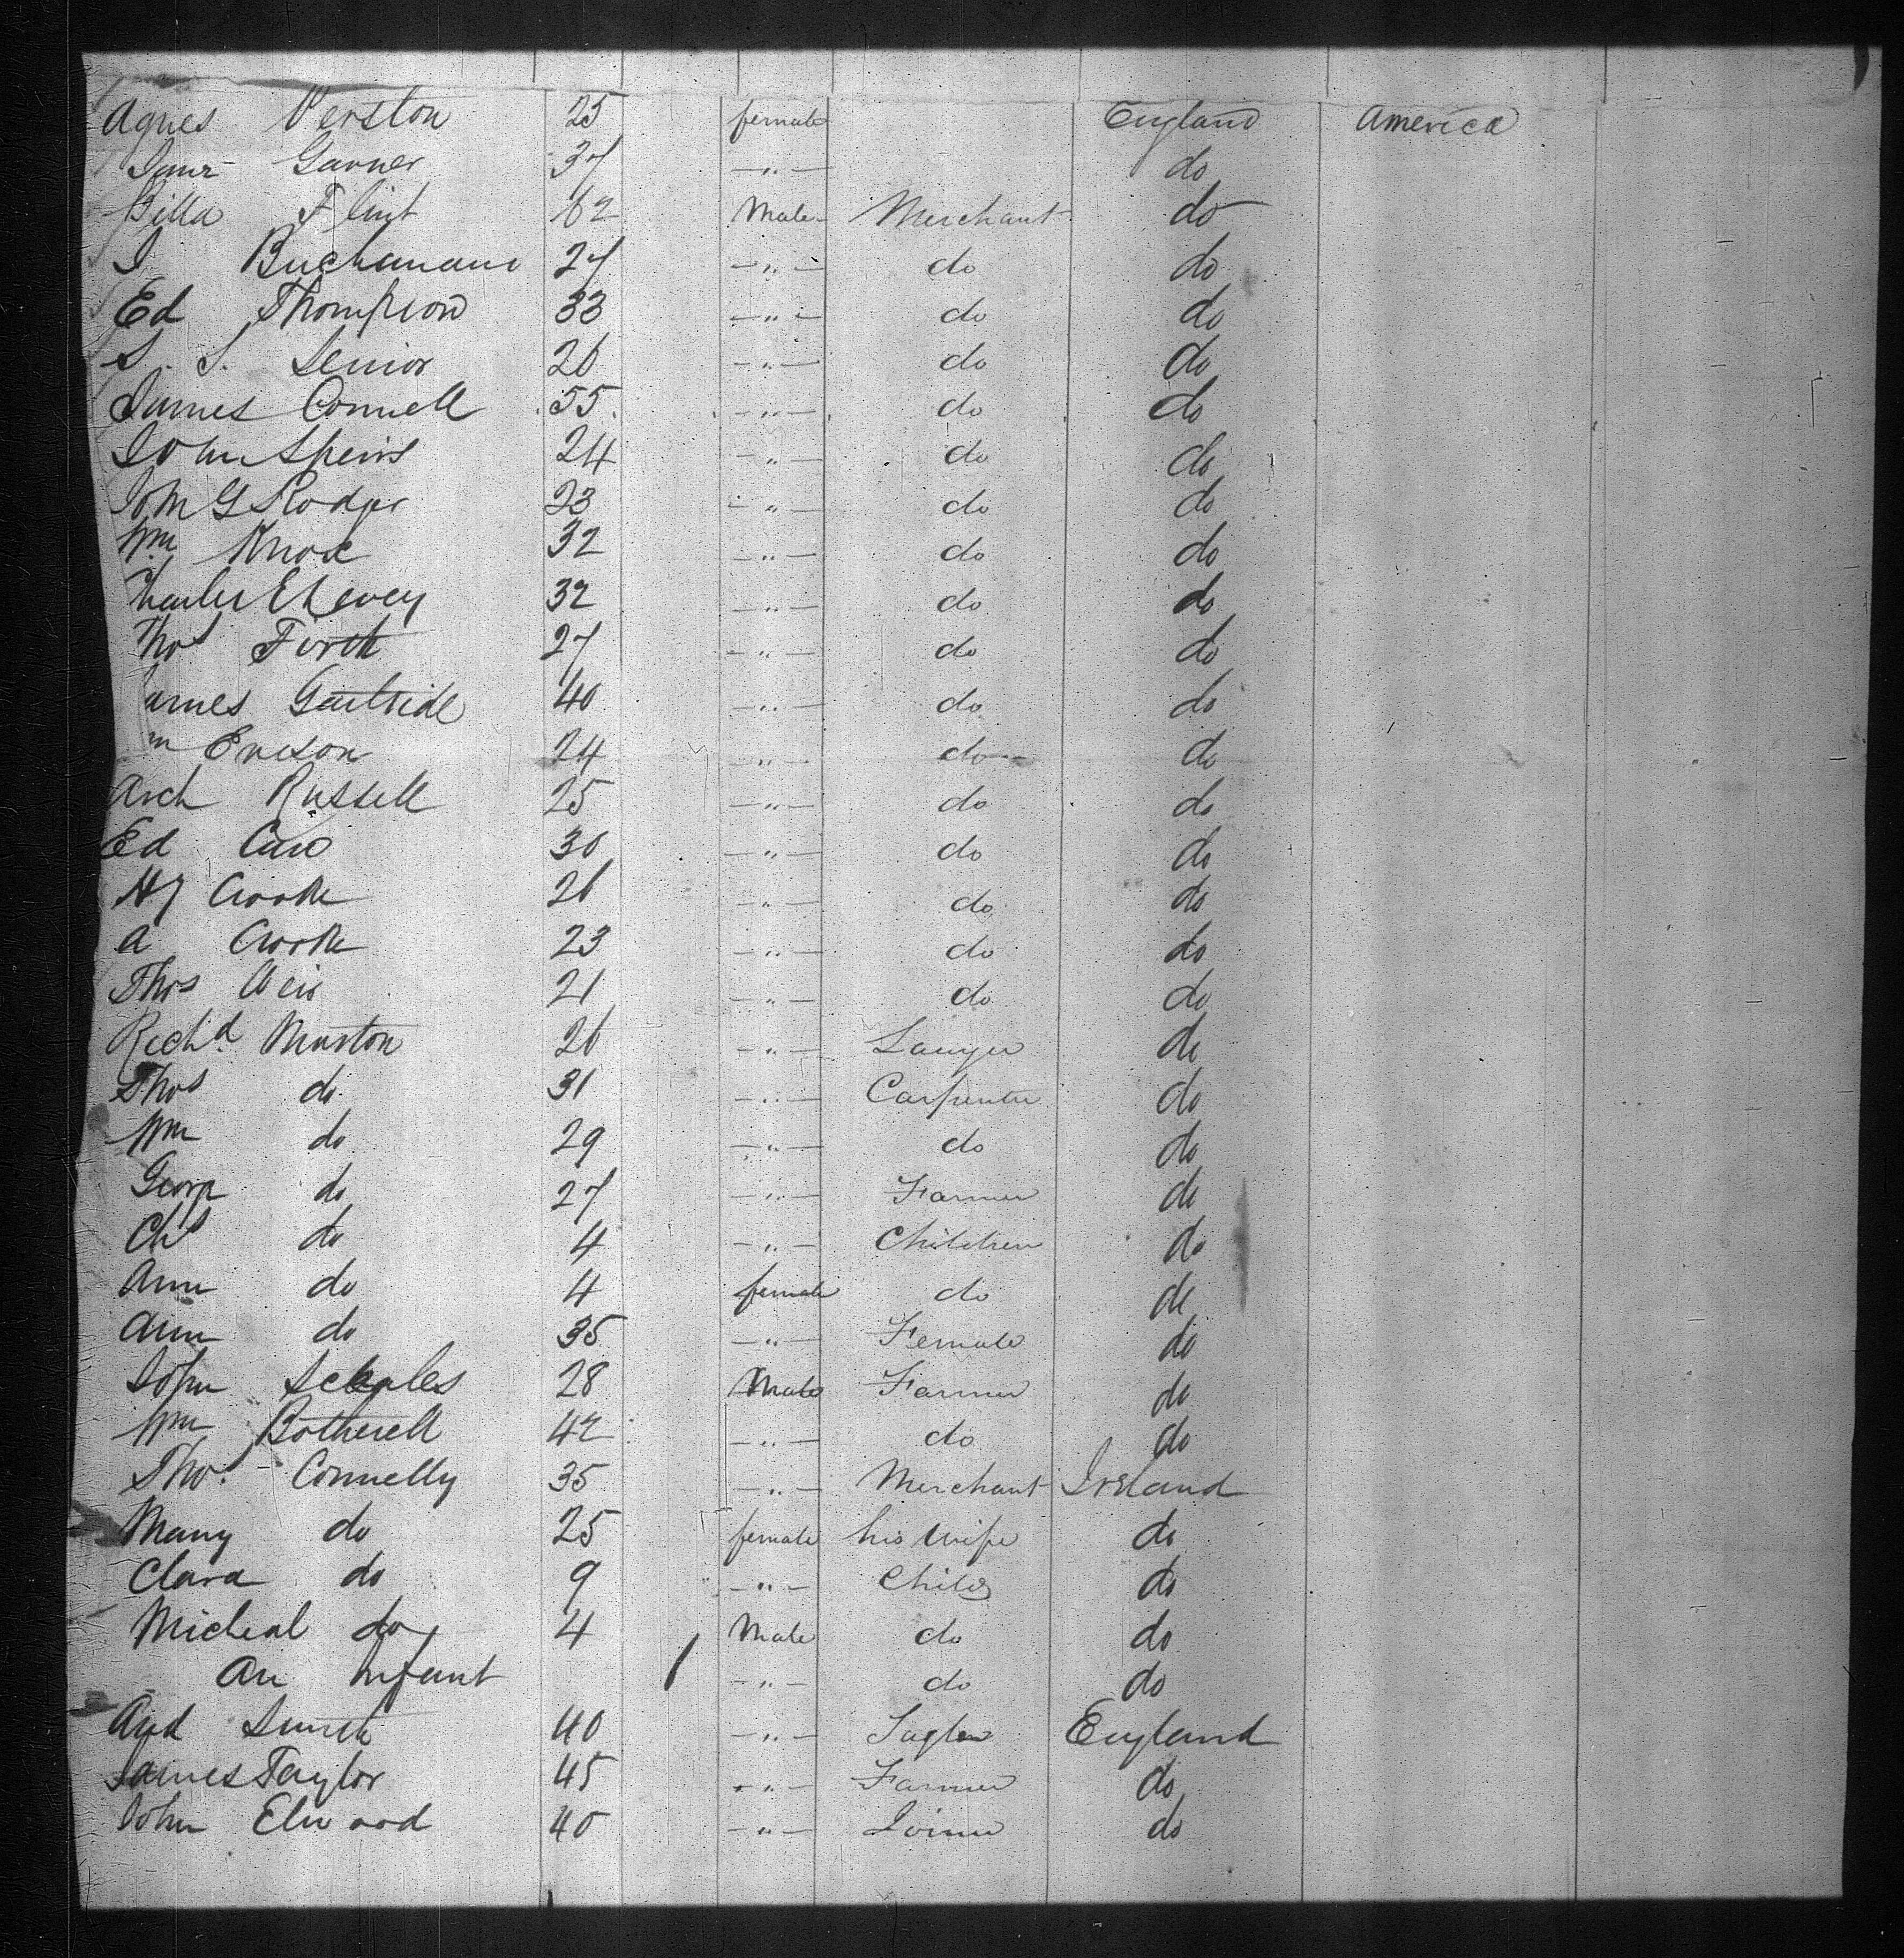 Agnes Perston 25 female England America
Jane Garner 37 —"— do
Billa Flint 62 Male Merchant do
J Buchanan 27 —"— do do
Ed Thompson 33 —"— do do
S. S. Senior 26 —"— do do
James Connell 55 —"— do do
John Speirs 24 —"— do do
John G Rodger 23 —"— do do
Wm Knox 32 —"— do do
Charles E 32 —"— do do
Thos Firth 27 —"— do do
ames Gartside 40 —"— do do
m Eveson 24 —"— do do
Arch Russell 25 —"— do do
Ed 30 —"— do do
Hy Crook 26 —"— do do
A Crook 23 —"— do do
Thos Weir 21 —"— do do
Richd Marston 26 —"— Lawyer do
Thos do 31 —"— Carpenter do
Wm do 29 —"— do do
George do 27 —"— Farmer do
Chs do 4 —"— Children do
Ann do 4 female do do
Ann do 35 —"— Female do
John Scholes 28 Male Farmer do
Wm Botherell 42 —"— do do
Thos Connelly 35 —"— Merchant Ireland
Mary do 25 female his Wife do
Clara do 9 —"— Child do
Micheal do 4 Male do do
An Infant 1 —"— do do
And 40 —"— England
James Taylor 45 —"— Farmer do
John Elwood 40 —"— Joiner do